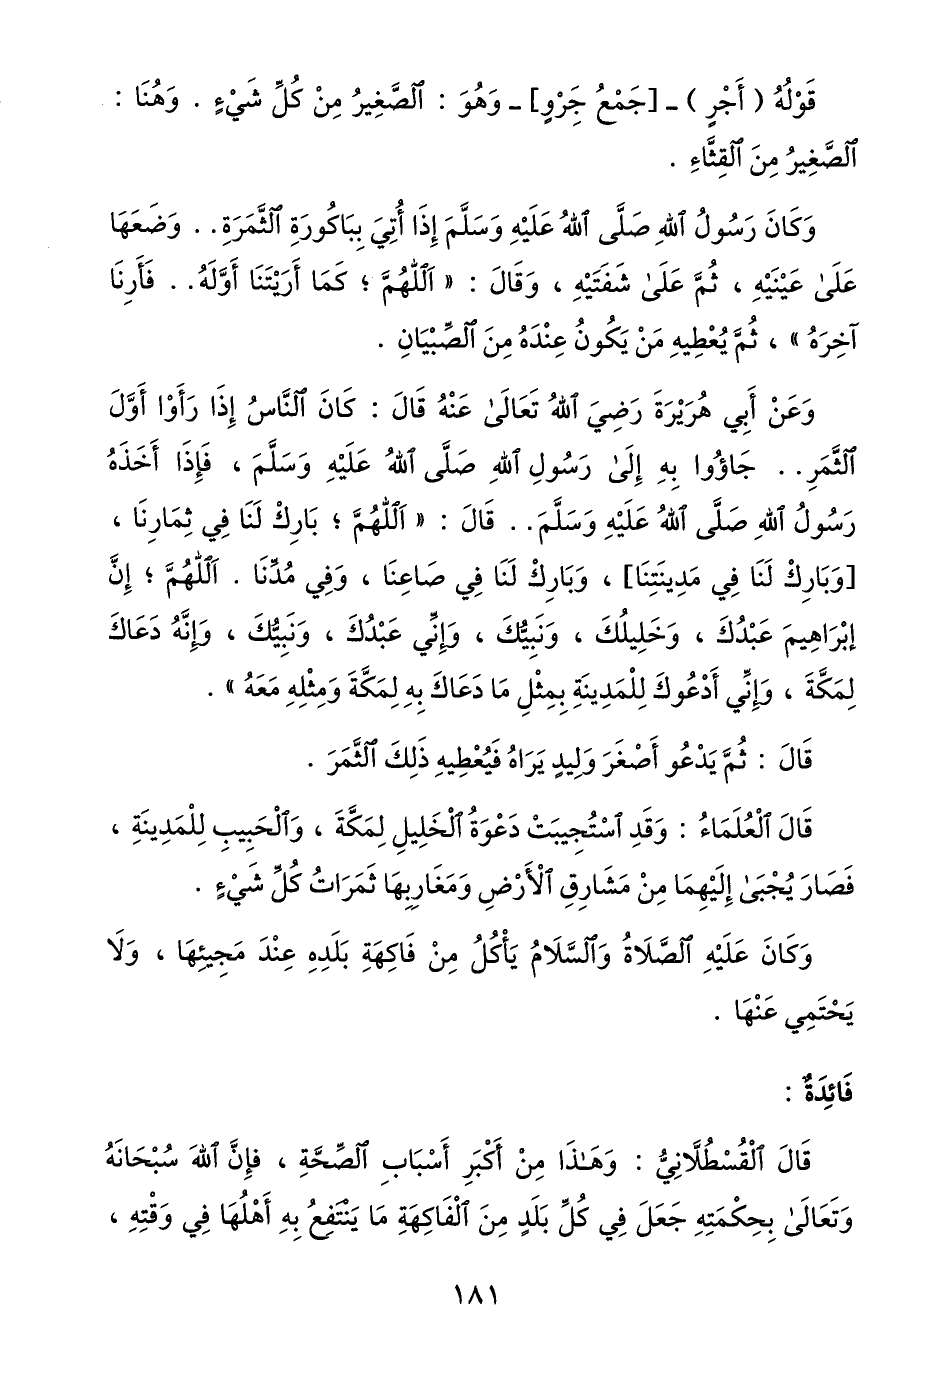 قَوْلُهُ ( أَجْرٍ ) - [جَمْعُ جَرْوٍ] - وَهُوَ : ٱلصَّغِيرُ مِنْ كُلِّ شَيْءٍ . وَهُنَا :
ٱلصَّغِيرُ مِنَ ٱلْقِثَّاءِ .
وَكَانَ رَسُولُ ٱللهِ صَلَّى ٱللهُ عَلَيْهِ وَسَلَّمَ إِذَا أُتِيَ بِبَاكُورَةِ ٱلثَّمَرَةِ . . وَضَعَهَا
عَلَىٰ عَيْنَيْهِ ، ثُمَّ عَلَىٰ شَفَتَيْهِ ، وَقَالَ : « ٱَللَّهُمَّ ؛ كَمَا أَرَيْتَنَا أَوَّلَهُ . . فَأَرِنَا
آخِرَهُ » ، ثُمَّ يُعْطِيهِ مَنْ يَكُونُ عِنْدَهُ مِنَ ٱلصِّبْيَانِ .
وَعَنْ أَبِي هُرَيْرَةَ رَضِيَ ٱللهُ تَعَالَىٰ عَنْهُ قَالَ : كَانَ ٱلنَّاسُ إِذَا رَأَوْا أَوَّلَ
ٱلثَّمَرِ . . جَاؤُوا بِهِ إِلَىٰ رَسُولِ ٱللهِ صَلَّى ٱللهُ عَلَيْهِ وَسَلَّمَ ، فَإِذَا أَخَذَهُ
رَسُولُ ٱللهِ صَلَّى ٱللهُ عَلَيْهِ وَسَلَّمَ . . قَالَ : « ٱَللَّهُمَّ ؛ بَارِكْ لَنَا فِي ثِمَارِنَا ،
[وَبَارِكْ لَنَا فِي مَدِينَتِنَا] ، وَبَارِكْ لَنَا فِي صَاعِنَا ، وَفِي مُدِّنَا . ٱَللَّهُمَّ ؛ إِنَّ
إِبْرَاهِيمَ عَبْدُكَ ، وَخَلِيلُكَ ، وَنَبِيُّكَ ، وَإِنِّي عَبْدُكَ ، وَنَبِيُّكَ ، وَإِنَّهُ دَعَاكَ
لِمَكَّةَ ، وَإِنِّي أَدْعُوكَ لِلْمَدِينَةِ بِمِثْلِ مَا دَعَاكَ بِهِ لِمَكَّةَ وَمِثْلِهِ مَعَهُ » .
قَالَ : ثُمَّ يَدْعُو أَصْغَرَ وَلِيدٍ يَرَاهُ فَيُعْطِيهِ ذَلِكَ ٱلثَّمَرَ .
قَالَ ٱلْعُلَمَاءُ : وَقَدِ ٱسْتُجِيبَتْ دَعْوَةُ ٱلْخَلِيلِ لِمَكَّةَ ، وَٱلْحَبِيبِ لِلْمَدِينَةِ ،
فَصَارَ يُجْبَىٰ إِلَيْهِمَا مِنْ مَشَارِقِ ٱلْأَرْضِ وَمَغَارِبِهَا ثَمَرَاتُ كُلِّ شَيْءٍ .
وَكَانَ عَلَيْهِ ٱلصَّلَاةُ وَٱلسَّلَامُ يَأْكُلُ مِنْ فَاكِهَةِ بَلَدِهِ عِنْدَ مَجِيئِهَا ، وَلَا
يَحْتَمِي عَنْهَا .
فَائِدَةٌ :
قَالَ ٱلْقُسْطُلَّانِيُّ : وَهَـٰذَا مِنْ أَكْبَرِ أَسْبَابِ ٱلصِّحَّةِ ، فَإِنَّ ٱللهَ سُبْحَانَهُ
وَتَعَالَىٰ بِحِكْمَتِهِ جَعَلَ فِي كُلِّ بَلَدٍ مِنَ ٱلْفَاكِهَةِ مَا يَنْتَفِعُ بِهِ أَهْلُهَا فِي وَقْتِهِ ،
١٨١